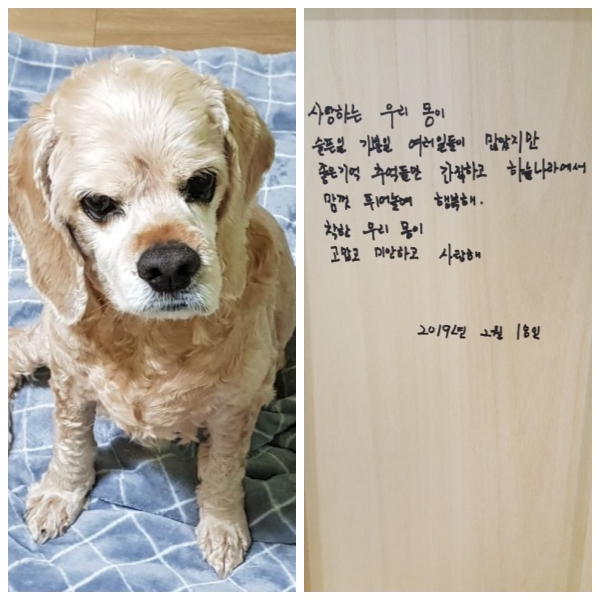 사랑하는 우리 몽이
슬픈일 기쁜일 여러일들이 많았지만
좋은기억 추억들만 간직하고 하늘나라에서
맘껏 뛰어놀며 행복해.
착한 우리 몽이
고맙고 미안하고 사랑해
2019년 2월 18일